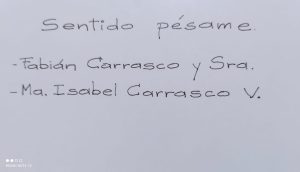 Sentido pésame.
- Fabián Carrasco y Sra.
- Ma. Isabel Carrasco V.